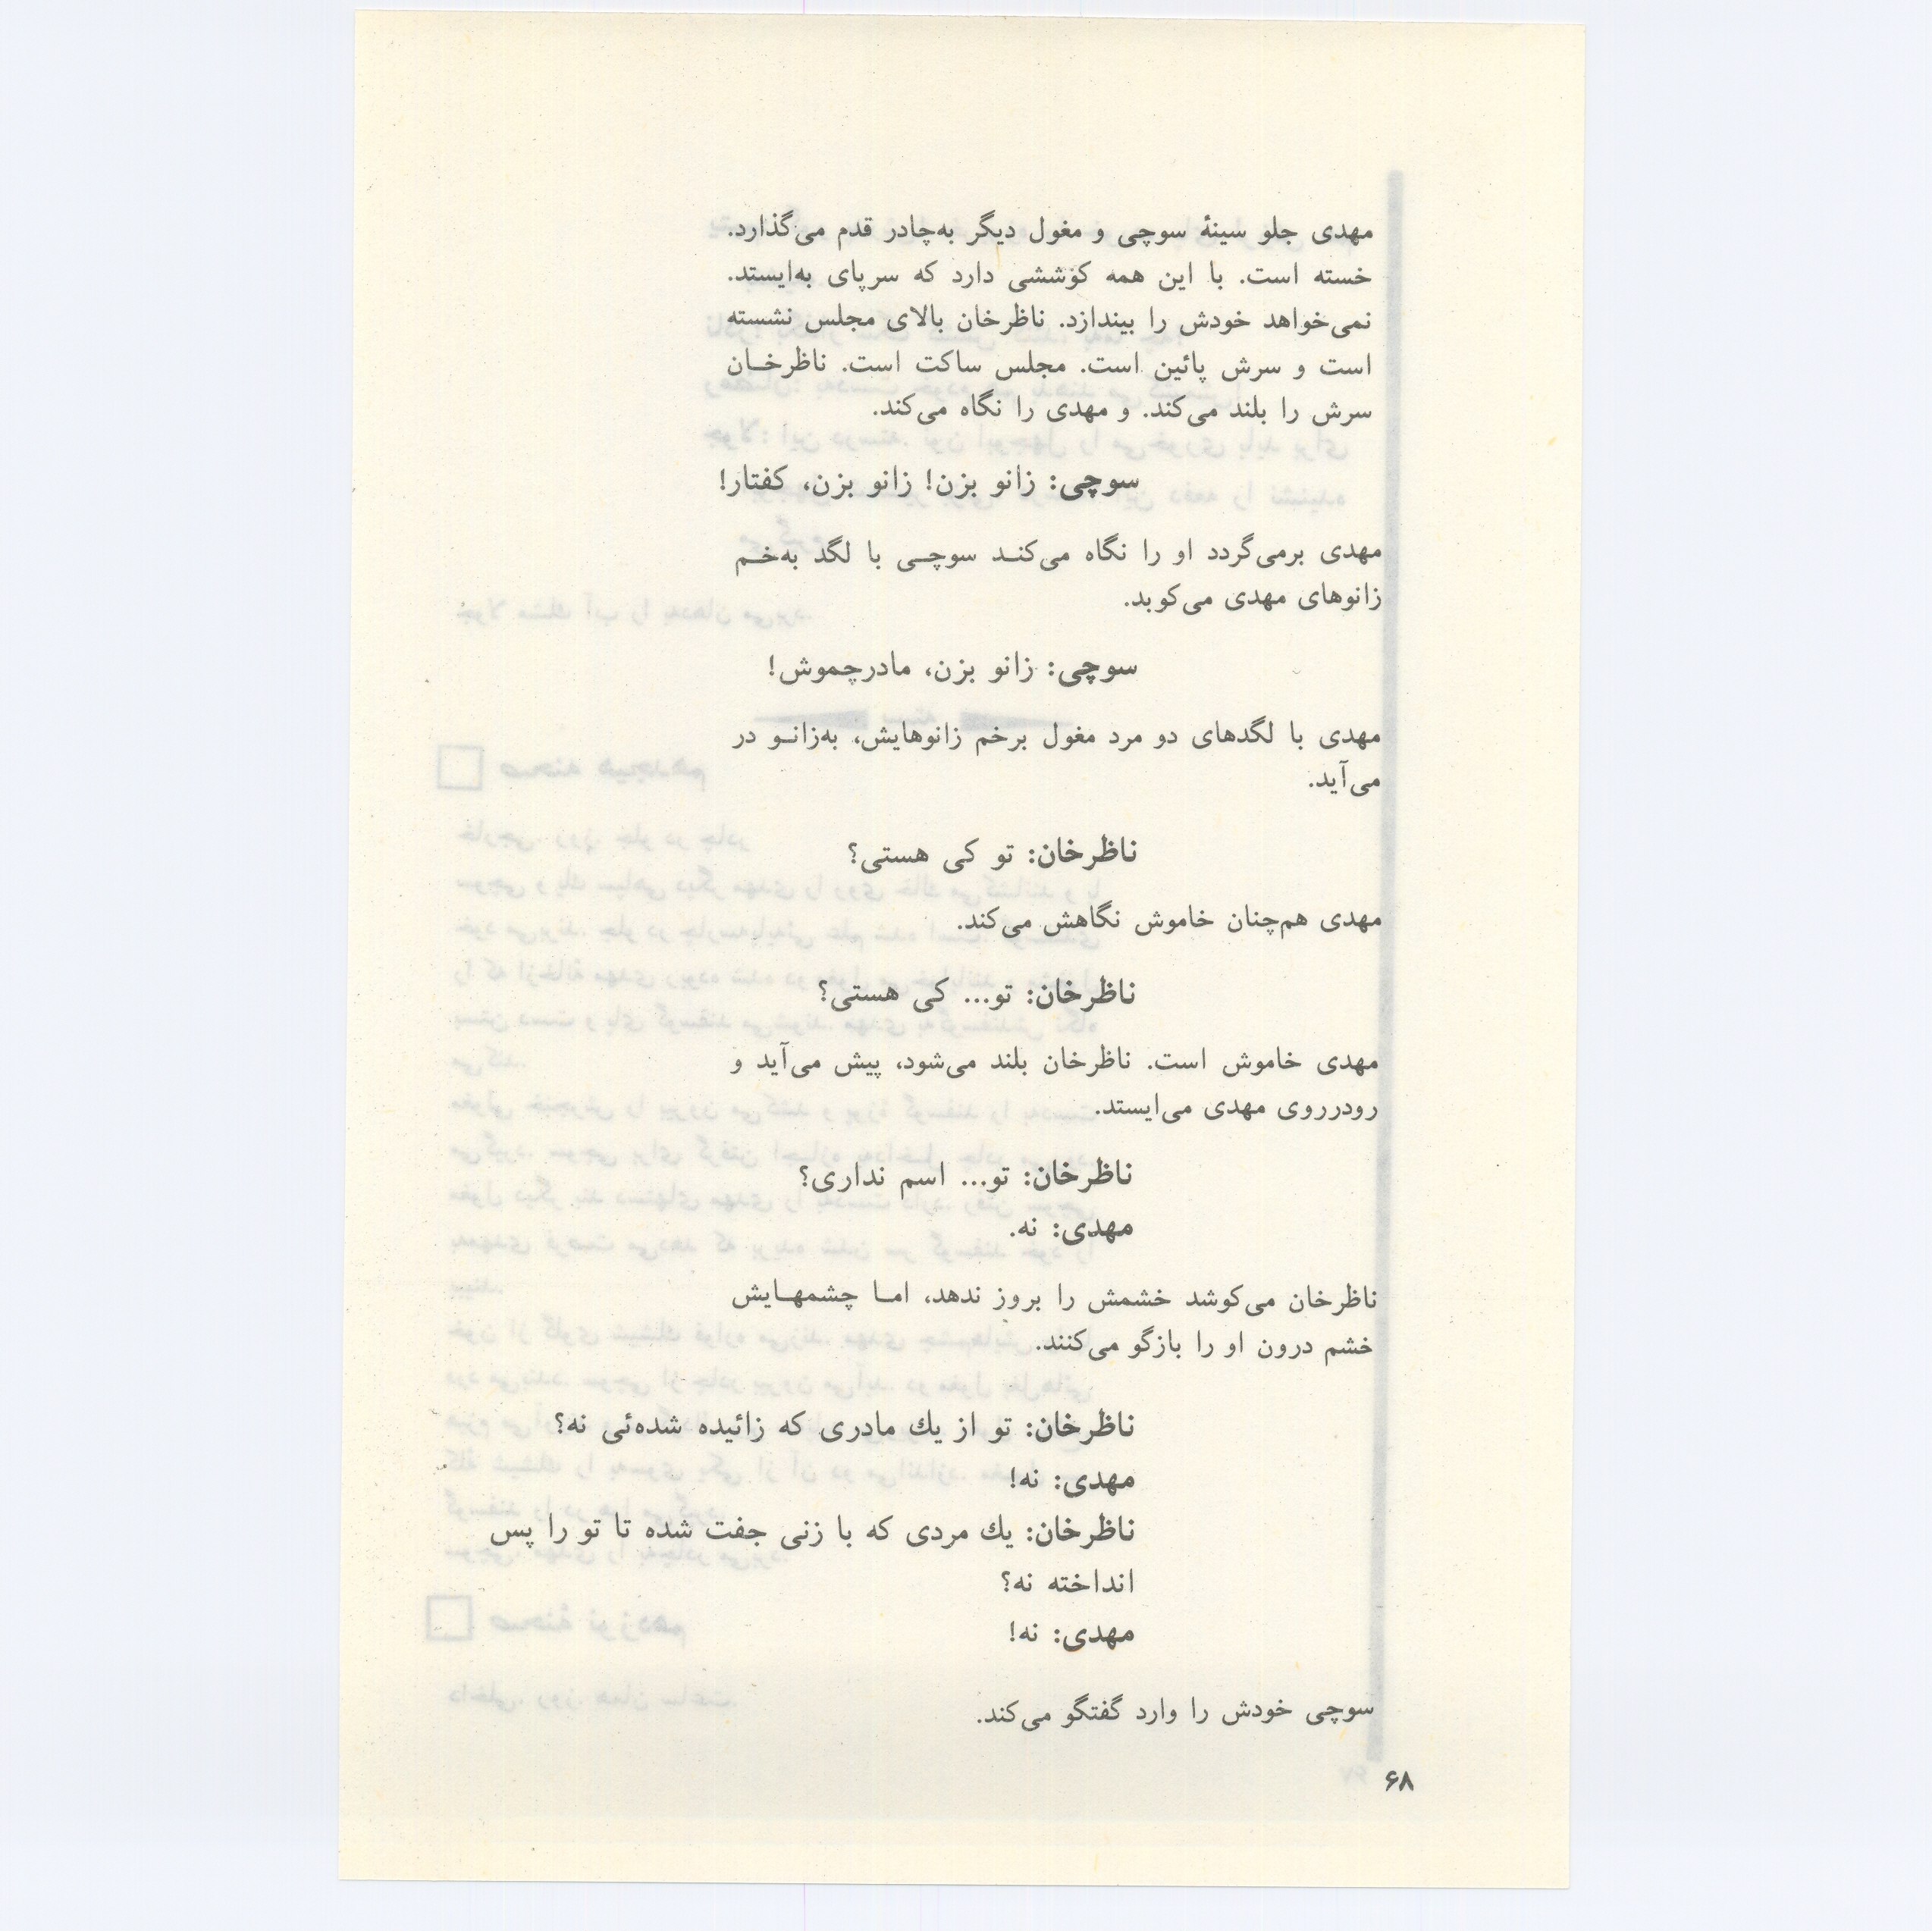 مهدی جلو سینهٔ سوچی و مغول دیگر به‌چادر قدم می‌گذارد.
خسته است. با این همه کوششی دارد که سرپای به‌ایستد.
نمی‌خواهد خودش را بیندازد. ناظرخان بالای مجلس نشسته
است و سرش پائین است. مجلس ساکت است. ناظرخان
سرش را بلند می‌کند. و مهدی را نگاه می‌کند.
سوچی: زانو بزن! زانو بزن، کفتار!
مهدی برمی‌گردد او را نگاه می‌کند سوچی با لگد به‌خم
زانوهای مهدی می‌کوبد.
سوچی: زانو بزن، مادرچموش!
مهدی با لگدهای دو مرد مغول برخم زانوهایش، به‌زانو در
می‌آید.
ناظرخان: تو کی هستی؟
مهدی هم‌چنان خاموش نگاهش می‌کند.
ناظرخان: تو... کی هستی؟
مهدی خاموش است. ناظرخان بلند می‌شود، پیش می‌آید و
رودرروی مهدی می‌ایستد.
ناظرخان: تو... اسم نداری؟
مهدی: نه.
ناظرخان می‌کوشد خشمش را بروز ندهد، اما چشمهایش
خشم درون او را بازگو می‌کنند.
ناظرخان: تو از يك مادری که زائیده شده‌ئی نه؟
مهدی: نه!
ناظرخان: يك مردی که با زنی جفت شده تا تو را پس
انداخته نه؟
مهدی: نه!
سوچی خودش را وارد گفتگو می‌کند.
۶۸